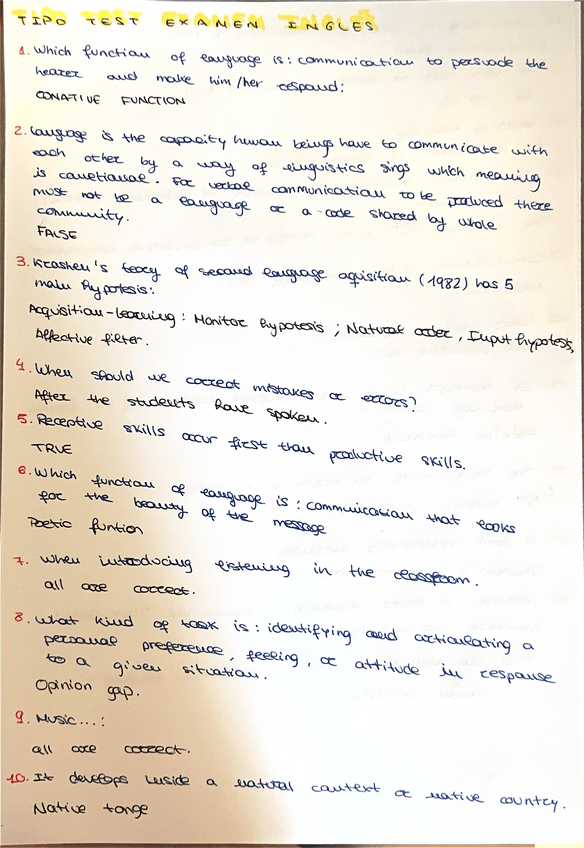 TIPO TEST EXAMEN INGLES
1. Which function of language is: communication to persuade the
hearer and make him/her respond:
CONATIVE FUNCTION
2. Language is the capacity human beings have to communicate with
each other by a way of linguistics sings which meaning
is conventional. For verbal communication to be produced there
must not be a language or a code shared by whole
community.
FALSE
3. Krashen's teory of second language aquisition (1982) has 5
main hypotesis:
Acquisition-learning: Monitor hypotesis; Natural order, Input hypotesis,
Affective filter.
4. When should we correct mistakes or errors?
After the students have spoken.
5. Receptive skills occur first than productive skills.
TRUE
6. Which function of language is: communication that looks
for the beauty of the message
Poetic funtion
7. When introducing listening in the classroom.
all are correct.
8. What kind of task is: identifying and articulating a
personal preference, feeling, or attitude in response
to a given situation.
Opinion gap.
9. Music...:
all are correct.
10. It develops inside a natural context or native country.
Native tonge